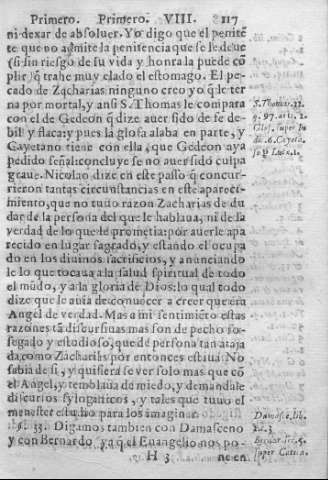 Primero. Primero. VIII. 117
ni dexar de absoluer. Yo digo que el peniten
te que no admite la penitencia que se le deue
(si sin riesgo de su vida y honra la puede cõ
plir) q̃ trahe muy elado el estomago. El pe-
cado de Zacharias ninguno creyo q̃ le ter
na por mortal, y ansi S. Thomas le compara
con el de Gedeon q̃ dize auer sido de fe de-
bil y flaca: y pues la glosa alaba en parte, y
Cayetano tiene con ella, que Gedeon aya
pedido señal: concluye se no auer sido culpa
graue. Nicolao dize en este passo q̃ concur-
rieron tantas circunstancias en este apareci-
miento, que no tuuo razon Zacharias de du
dar de la persona del que le hablaua, ni de la
verdad de lo que le prometia: por auerle apa
recido en lugar sagrado, y estando el ocupa
do en los diuinos sacrificios, y anunciando
le lo que tocaua a la salud spiritual de todo
el mũdo, y a la gloria de Dios: lo qual todo
dize que le auia de conuecer a creer que era
Angel de verdad. Mas a mi sentimiẽto estas
razones tã discursiuas mas son de pecho so-
segado y estudioso, que de persona tan ataja
da, como Zacharias por entonces estaua. No
sabia de si, y quisiera se ver solo mas que cõ
el Angel, y temblaua de miedo, y demandale
discursos sylogisticos, y tales que tuuo el
menester estudio para los imaginar.
§. 33. Digamos tambien con Damasceno
y con Bernardo, ya q̃ el Euangelio nos po-
H 3 ne en
S. Thomas. 22.
q. 97. ar. 2.
Glos. super Iu
dic. 6. Cayeta.
Damasce. lib.
Bernar. ser.
super Cantica.